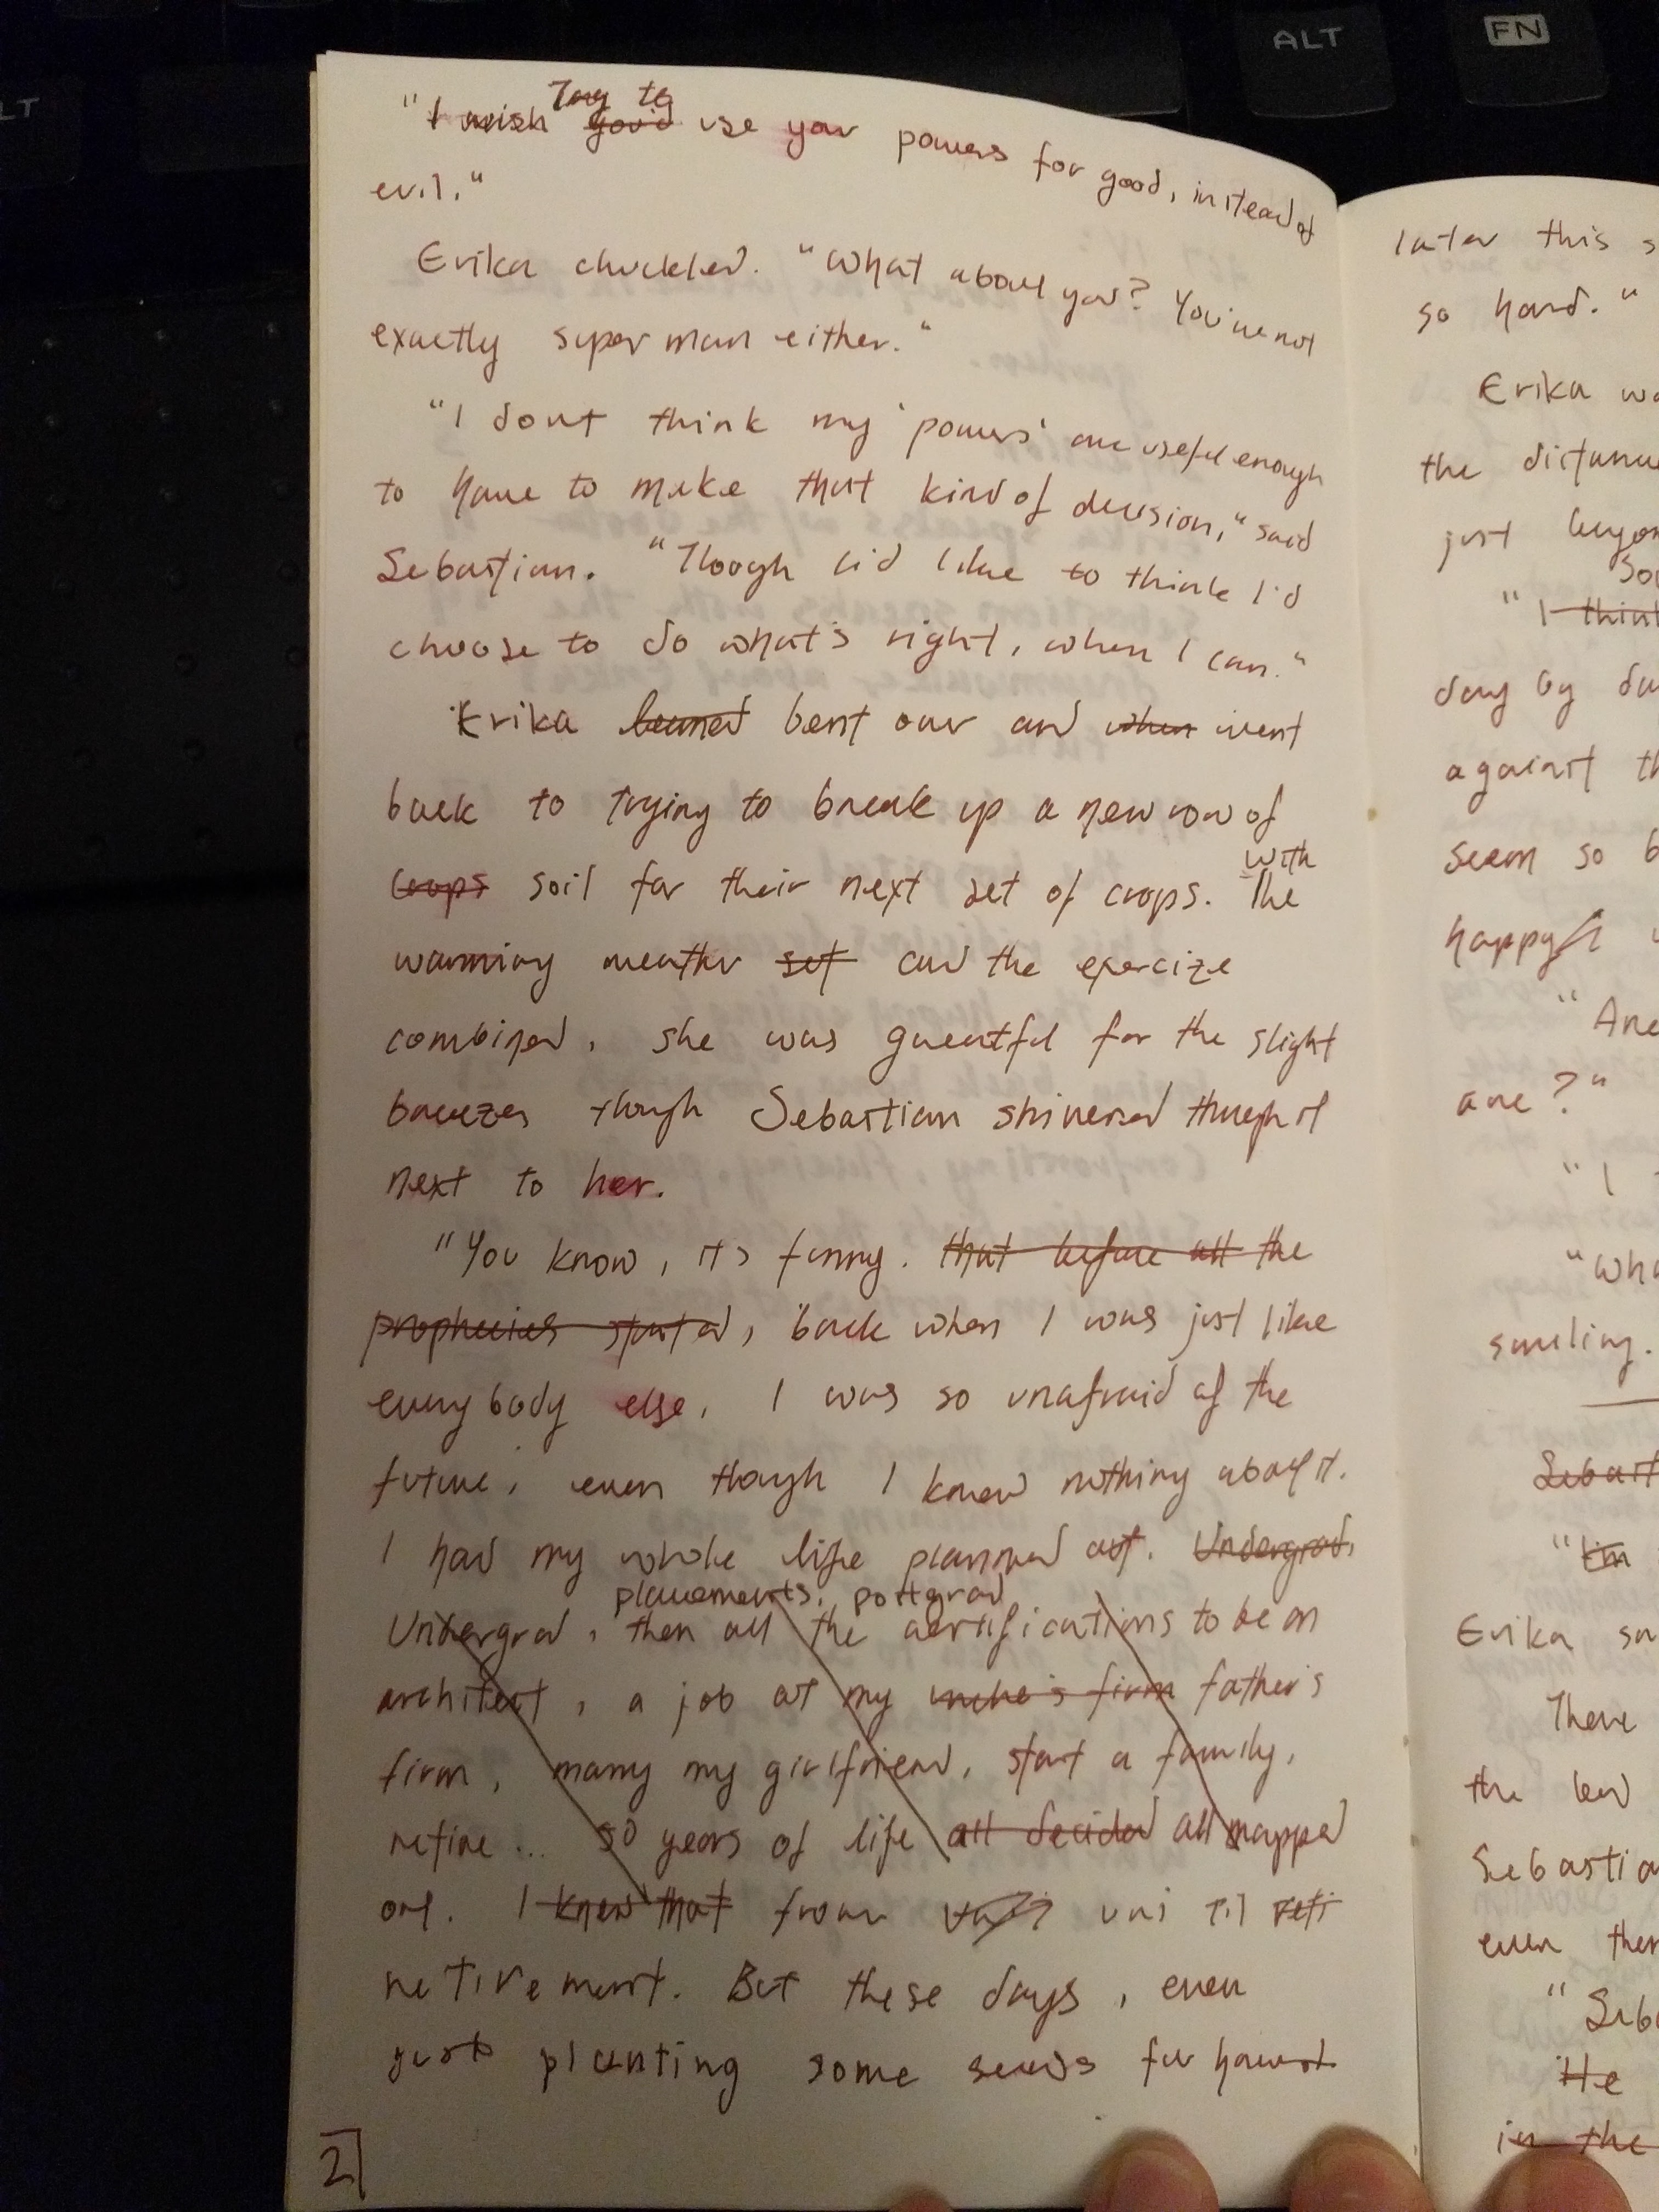 LT
ALT
FN
Try to
"I wish you'd use your powers for good, instead of
evil."
Erika chuckled. "What about you? You're not
exactly superman either."
"I dont think my 'powers' are useful enough
to have to make that kind of decision," said
Sebastian. "Though I'd like to think I'd
choose to do what's right, when I can."
Erika leaned bent over and when went
back to trying to break up a new row of
with
crops soil for their next set of crops. The
warming weather set and the exercize
combined, she was greatful for the slight
breezes though Sebastian shivered through it
next to her.
"You know, it's funny. that before all the
prophecies started, back when I was just like
everybody else, I was so unafraid of the
future, even though I knew nothing about it.
I had my whole life planned out. Undergrad,
placements, postgrad
Undergrad, then all the certifications to be an
architect, a job at my uncle's firm father's
firm, marry my girlfriend, start a family,
retire... 50 years of life all decided all mapped
out. I knew that from uni til reti
retirement. But these days, even
just planting some seeds for harvest
2
later this s
so hard."
Erika wa
the distance
just beyon
So
"I think
day by da
against th
seem so b
happy
"Are
are?"
"I
"Wha
smiling.
Sebast
"I'm
Erika sa
There
the bed
Sebastia
even then
"Seba
He
in the